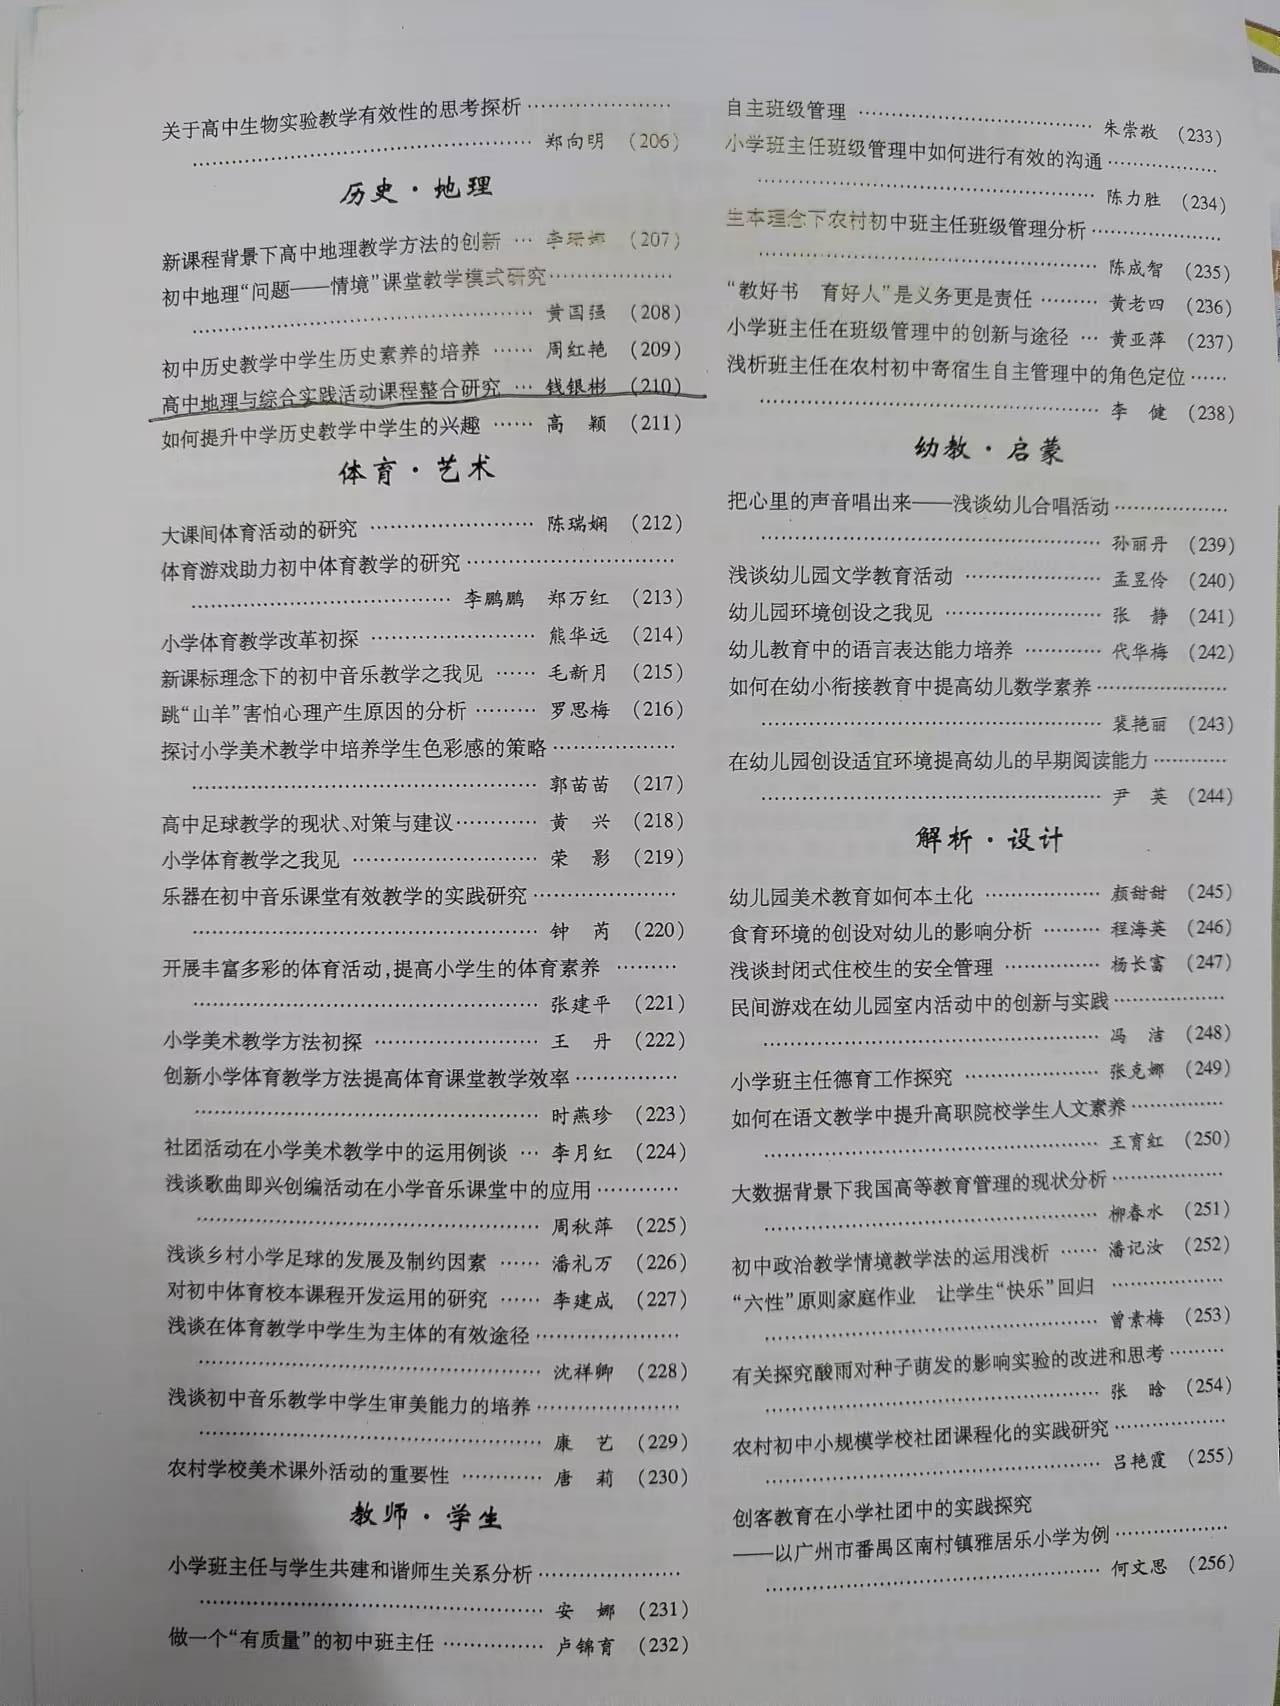 关于高中生物实验教学有效性的思考探析……………………
…………………………………………… 郑向明 (206)
历史·地理
新课程背景下高中地理教学方法的创新 … 李珊娜 (207)
初中地理“问题——情境”课堂教学模式研究………………
…………………………………………… 黄国强 (208)
初中历史教学中学生历史素养的培养 …… 周红艳 (209)
高中地理与综合实践活动课程整合研究 … 钱银彬 (210)
如何提升中学历史教学中学生的兴趣 …… 高 颖 (211)
体育·艺术
大课间体育活动的研究 …………………… 陈瑞娴 (212)
体育游戏助力初中体育教学的研究…………………………
………………………………… 李鹏鹏 郑万红 (213)
小学体育教学改革初探 …………………… 熊华远 (214)
新课标理念下的初中音乐教学之我见 …… 毛新月 (215)
跳“山羊”害怕心理产生原因的分析 ……… 罗思梅 (216)
探讨小学美术教学中培养学生色彩感的策略………………
…………………………………………… 郭苗苗 (217)
高中足球教学的现状、对策与建议………… 黄 兴 (218)
小学体育教学之我见 ……………………… 荣 影 (219)
乐器在初中音乐课堂有效教学的实践研究…………………
…………………………………………… 钟 芮 (220)
开展丰富多彩的体育活动,提高小学生的体育素养 ………
…………………………………………… 张建平 (221)
小学美术教学方法初探 …………………… 王 丹 (222)
创新小学体育教学方法提高体育课堂教学效率……………
…………………………………………… 时燕珍 (223)
社团活动在小学美术教学中的运用例谈 … 李月红 (224)
浅谈歌曲即兴创编活动在小学音乐课堂中的应用…………
…………………………………………… 周秋萍 (225)
浅谈乡村小学足球的发展及制约因素 …… 潘礼万 (226)
对初中体育校本课程开发运用的研究 …… 李建成 (227)
浅谈在体育教学中学生为主体的有效途径…………………
…………………………………………… 沈祥卿 (228)
浅谈初中音乐教学中学生审美能力的培养…………………
…………………………………………… 康 艺 (229)
农村学校美术课外活动的重要性 ………… 唐 莉 (230)
教师·学生
小学班主任与学生共建和谐师生关系分析…………………
…………………………………………… 安 娜 (231)
做一个“有质量”的初中班主任 …………… 卢锦育 (232)
自主班级管理 ……………………………… 朱崇敬 (233)
小学班主任班级管理中如何进行有效的沟通………………
…………………………………………… 陈力胜 (234)
生本理念下农村初中班主任班级管理分析…………………
…………………………………………… 陈成智 (235)
“教好书 育好人”是义务更是责任 ……… 黄老四 (236)
小学班主任在班级管理中的创新与途径 … 黄亚萍 (237)
浅析班主任在农村初中寄宿生自主管理中的角色定位……
…………………………………………… 李 健 (238)
幼教·启蒙
把心里的声音唱出来——浅谈幼儿合唱活动………………
…………………………………………… 孙丽丹 (239)
浅谈幼儿园文学教育活动 ………………… 孟昱伶 (240)
幼儿园环境创设之我见 …………………… 张 静 (241)
幼儿教育中的语言表达能力培养 ………… 代华梅 (242)
如何在幼小衔接教育中提高幼儿数学素养…………………
…………………………………………… 裴艳丽 (243)
在幼儿园创设适宜环境提高幼儿的早期阅读能力…………
…………………………………………… 尹 英 (244)
解析·设计
幼儿园美术教育如何本土化 ……………… 颜甜甜 (245)
食育环境的创设对幼儿的影响分析 ……… 程海英 (246)
浅谈封闭式住校生的安全管理 …………… 杨长富 (247)
民间游戏在幼儿园室内活动中的创新与实践………………
…………………………………………… 冯 洁 (248)
小学班主任德育工作探究 ………………… 张克娜 (249)
如何在语文教学中提升高职院校学生人文素养……………
…………………………………………… 王育红 (250)
大数据背景下我国高等教育管理的现状分析………………
…………………………………………… 柳春水 (251)
初中政治教学情境教学法的运用浅析 …… 潘记汝 (252)
“六性”原则家庭作业 让学生“快乐”回归 ………………
…………………………………………… 曾素梅 (253)
有关探究酸雨对种子萌发的影响实验的改进和思考………
…………………………………………… 张 晗 (254)
农村初中小规模学校社团课程化的实践研究………………
…………………………………………… 吕艳霞 (255)
创客教育在小学社团中的实践探究
——以广州市番禺区南村镇雅居乐小学为例………………
…………………………………………… 何文思 (256)